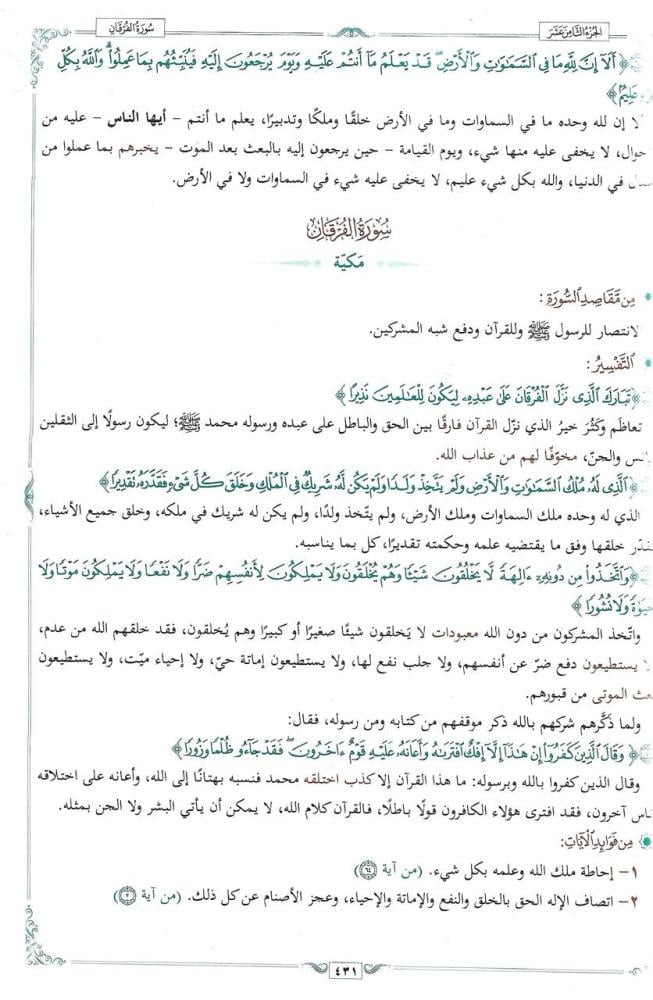 الجزء الثامن عشر
سورة الفرقان
﴿أَلَآ إِنَّ لِلَّهِ مَا فِى ٱلسَّمَـٰوَٰتِ وَٱلْأَرْضِ ۖ قَدْ يَعْلَمُ مَآ أَنتُمْ عَلَيْهِ وَيَوْمَ يُرْجَعُونَ إِلَيْهِ فَيُنَبِّئُهُم بِمَا عَمِلُوا۟ ۗ وَٱللَّهُ بِكُلِّ
عَلِيمٌ﴾
لا إن لله وحده ما في السماوات وما في الأرض خلقًا وملكًا وتدبيرًا، يعلم ما أنتم – أيها الناس – عليه من
حوال، لا يخفى عليه منها شيء، ويوم القيامة – حين يرجعون إليه بالبعث بعد الموت – يخبرهم بما عملوا من
في الدنيا، والله بكل شيء عليم، لا يخفى عليه شيء في السماوات ولا في الأرض.
سُورَةُ الفُرْقَانِ
مَكيّة
مِن مَّقَاصِدِ السُّورَةِ:
لانتصار للرسول ﷺ وللقرآن ودفع شبه المشركين.
التَّفْسِيرُ:
﴿تَبَارَكَ ٱلَّذِى نَزَّلَ ٱلْفُرْقَانَ عَلَىٰ عَبْدِهِۦ لِيَكُونَ لِلْعَـٰلَمِينَ نَذِيرًا﴾
تعاظَم وكَثُرَ خيرُ الذي نزّل القرآن فارقًا بين الحق والباطل على عبده ورسوله محمد ﷺ؛ ليكون رسولًا إلى الثقلين
نس والجنّ، مخوّفًا لهم من عذاب الله.
﴿ٱلَّذِى لَهُۥ مُلْكُ ٱلسَّمَـٰوَٰتِ وَٱلْأَرْضِ وَلَمْ يَتَّخِذْ وَلَدًا وَلَمْ يَكُن لَّهُۥ شَرِيكٌ فِى ٱلْمُلْكِ وَخَلَقَ كُلَّ شَىْءٍ فَقَدَّرَهُۥ تَقْدِيرًا﴾
الذي له وحده ملك السماوات وملك الأرض، ولم يتّخذ ولدًا، ولم يكن له شريك في ملكه، وخلق جميع الأشياء،
قدّر خلقها وفق ما يقتضيه علمه وحكمته تقديرًا، كل بما يناسبه.
﴿وَٱتَّخَذُوا۟ مِن دُونِهِۦٓ ءَالِهَةً لَّا يَخْلُقُونَ شَيْـًٔا وَهُمْ يُخْلَقُونَ وَلَا يَمْلِكُونَ لِأَنفُسِهِمْ ضَرًّا وَلَا نَفْعًا وَلَا يَمْلِكُونَ مَوْتًا وَلَا
حَيَوٰةً وَلَا نُشُورًا﴾
واتّخذ المشركون من دون الله معبودات لا يَخلقون شيئًا صغيرًا أو كبيرًا وهم يُخلقون، فقد خلقهم الله من عدم،
لا يستطيعون دفع ضرّ عن أنفسهم، ولا جلب نفع لها، ولا يستطيعون إماتة حيّ، ولا إحياء ميّت، ولا يستطيعون
عث الموتى من قبورهم.
ولما ذَكَّرهم شركهم بالله ذكر موقفهم من كتابه ومن رسوله، فقال:
﴿وَقَالَ ٱلَّذِينَ كَفَرُوٓا۟ إِنْ هَـٰذَآ إِلَّآ إِفْكٌ ٱفْتَرَىٰهُ وَأَعَانَهُۥ عَلَيْهِ قَوْمٌ ءَاخَرُونَ ۖ فَقَدْ جَآءُو ظُلْمًا وَزُورًا﴾
وقال الذين كفروا بالله وبرسوله: ما هذا القرآن إلا كذب اختلقه محمد فنسبه بهتانًا إلى الله، وأعانه على اختلاقه
ناس آخرون، فقد افترى هؤلاء الكافرون قولًا باطلًا، فالقرآن كلام الله، لا يمكن أن يأتي البشر ولا الجن بمثله.
مِن فَوَائِدِ الآيَاتِ:
١– إحاطة ملك الله وعلمه بكل شيء. (من آية ٦٤)
٢– اتصاف الإله الحق بالخلق والنفع والإماتة والإحياء، وعجز الأصنام عن كل ذلك. (من آية ٣)
٤٣١